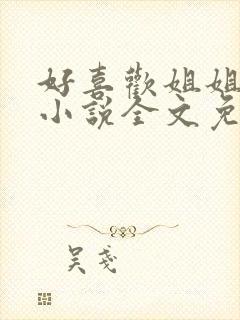 好喜歡姐姐
小說全文免
吴戔